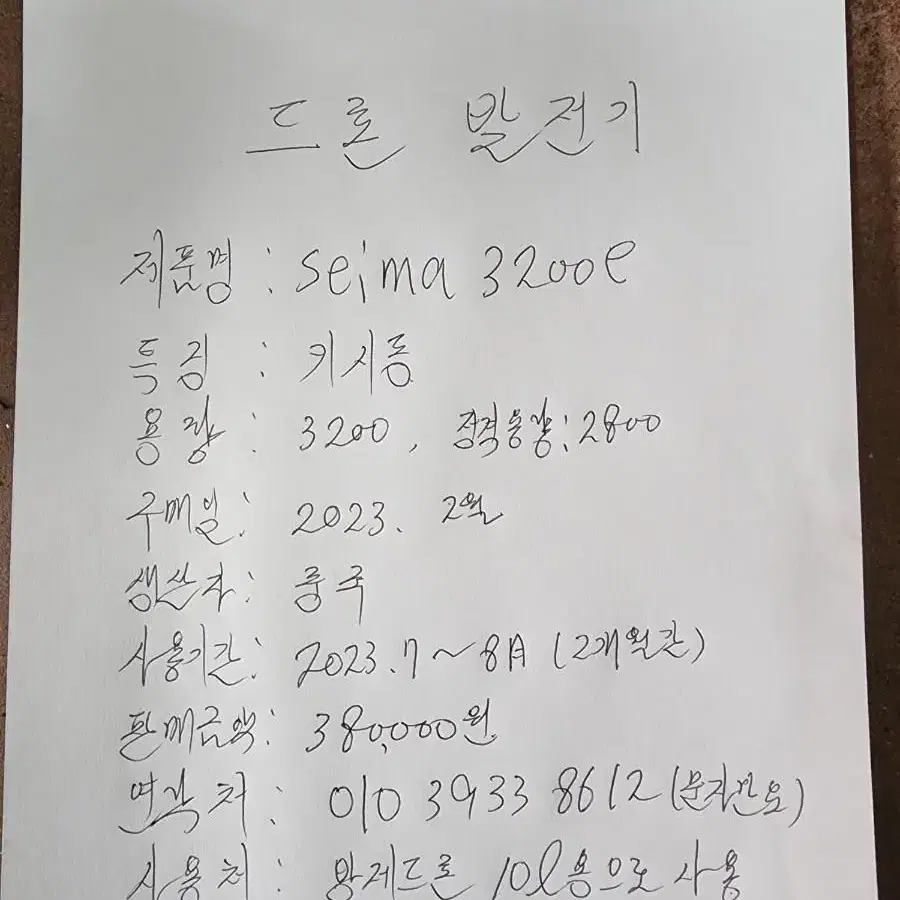 드론 발전기
제품명 : seima 3200e
특징 : 키시동
용량 : 3200, 정격용량: 2800
구매일: 2023. 2월
생산자: 중국
사용기간: 2023.7~8月 (2개월간)
판매금액: 380,000원
연락처: 010 3933 8612 (문자만요)
사용처: 방제드론 10ℓ용으로 사용